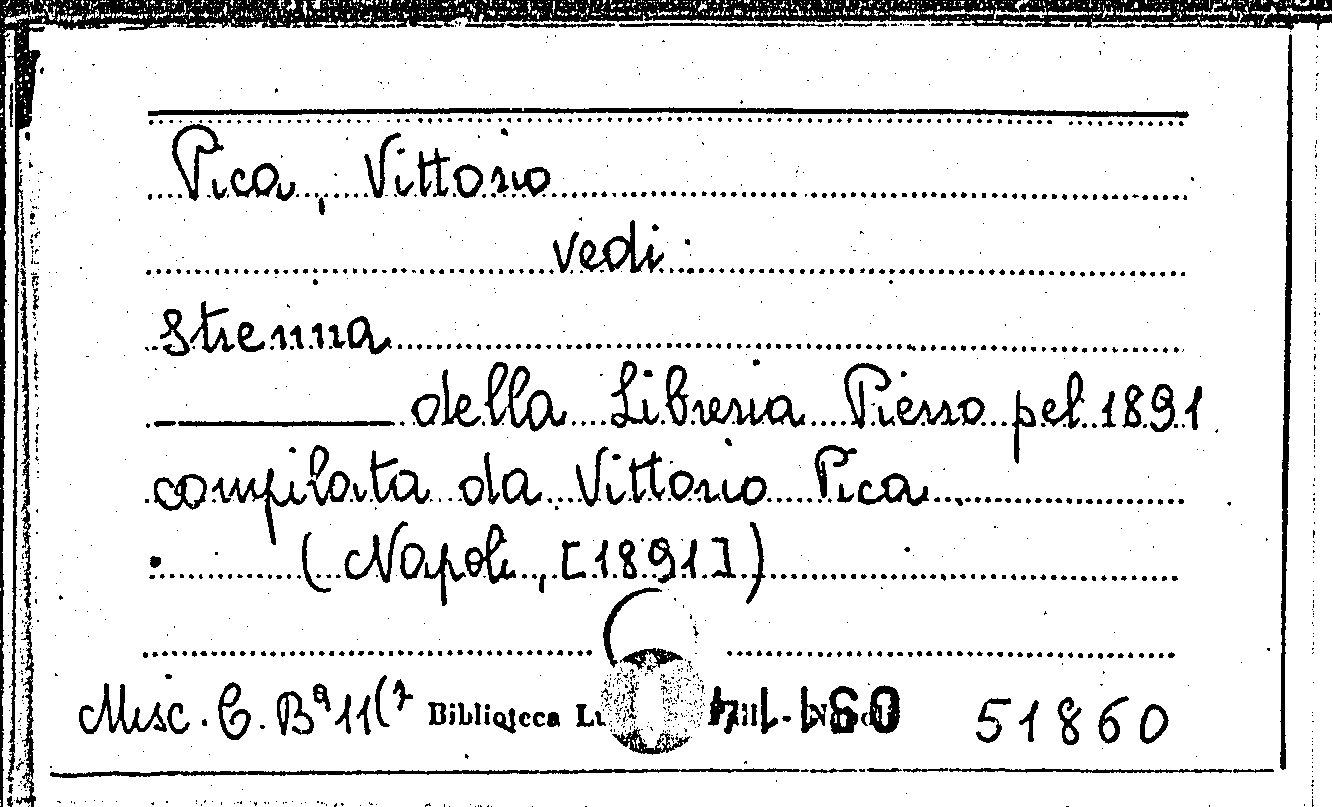 Pica, Vittorio
vedi:
Strenna
della Libreria Pierro pel 1891
compilata da Vittorio Pica
(Napoli, [1891])
Misc. C. Bª 11(7 Biblioteca 51860